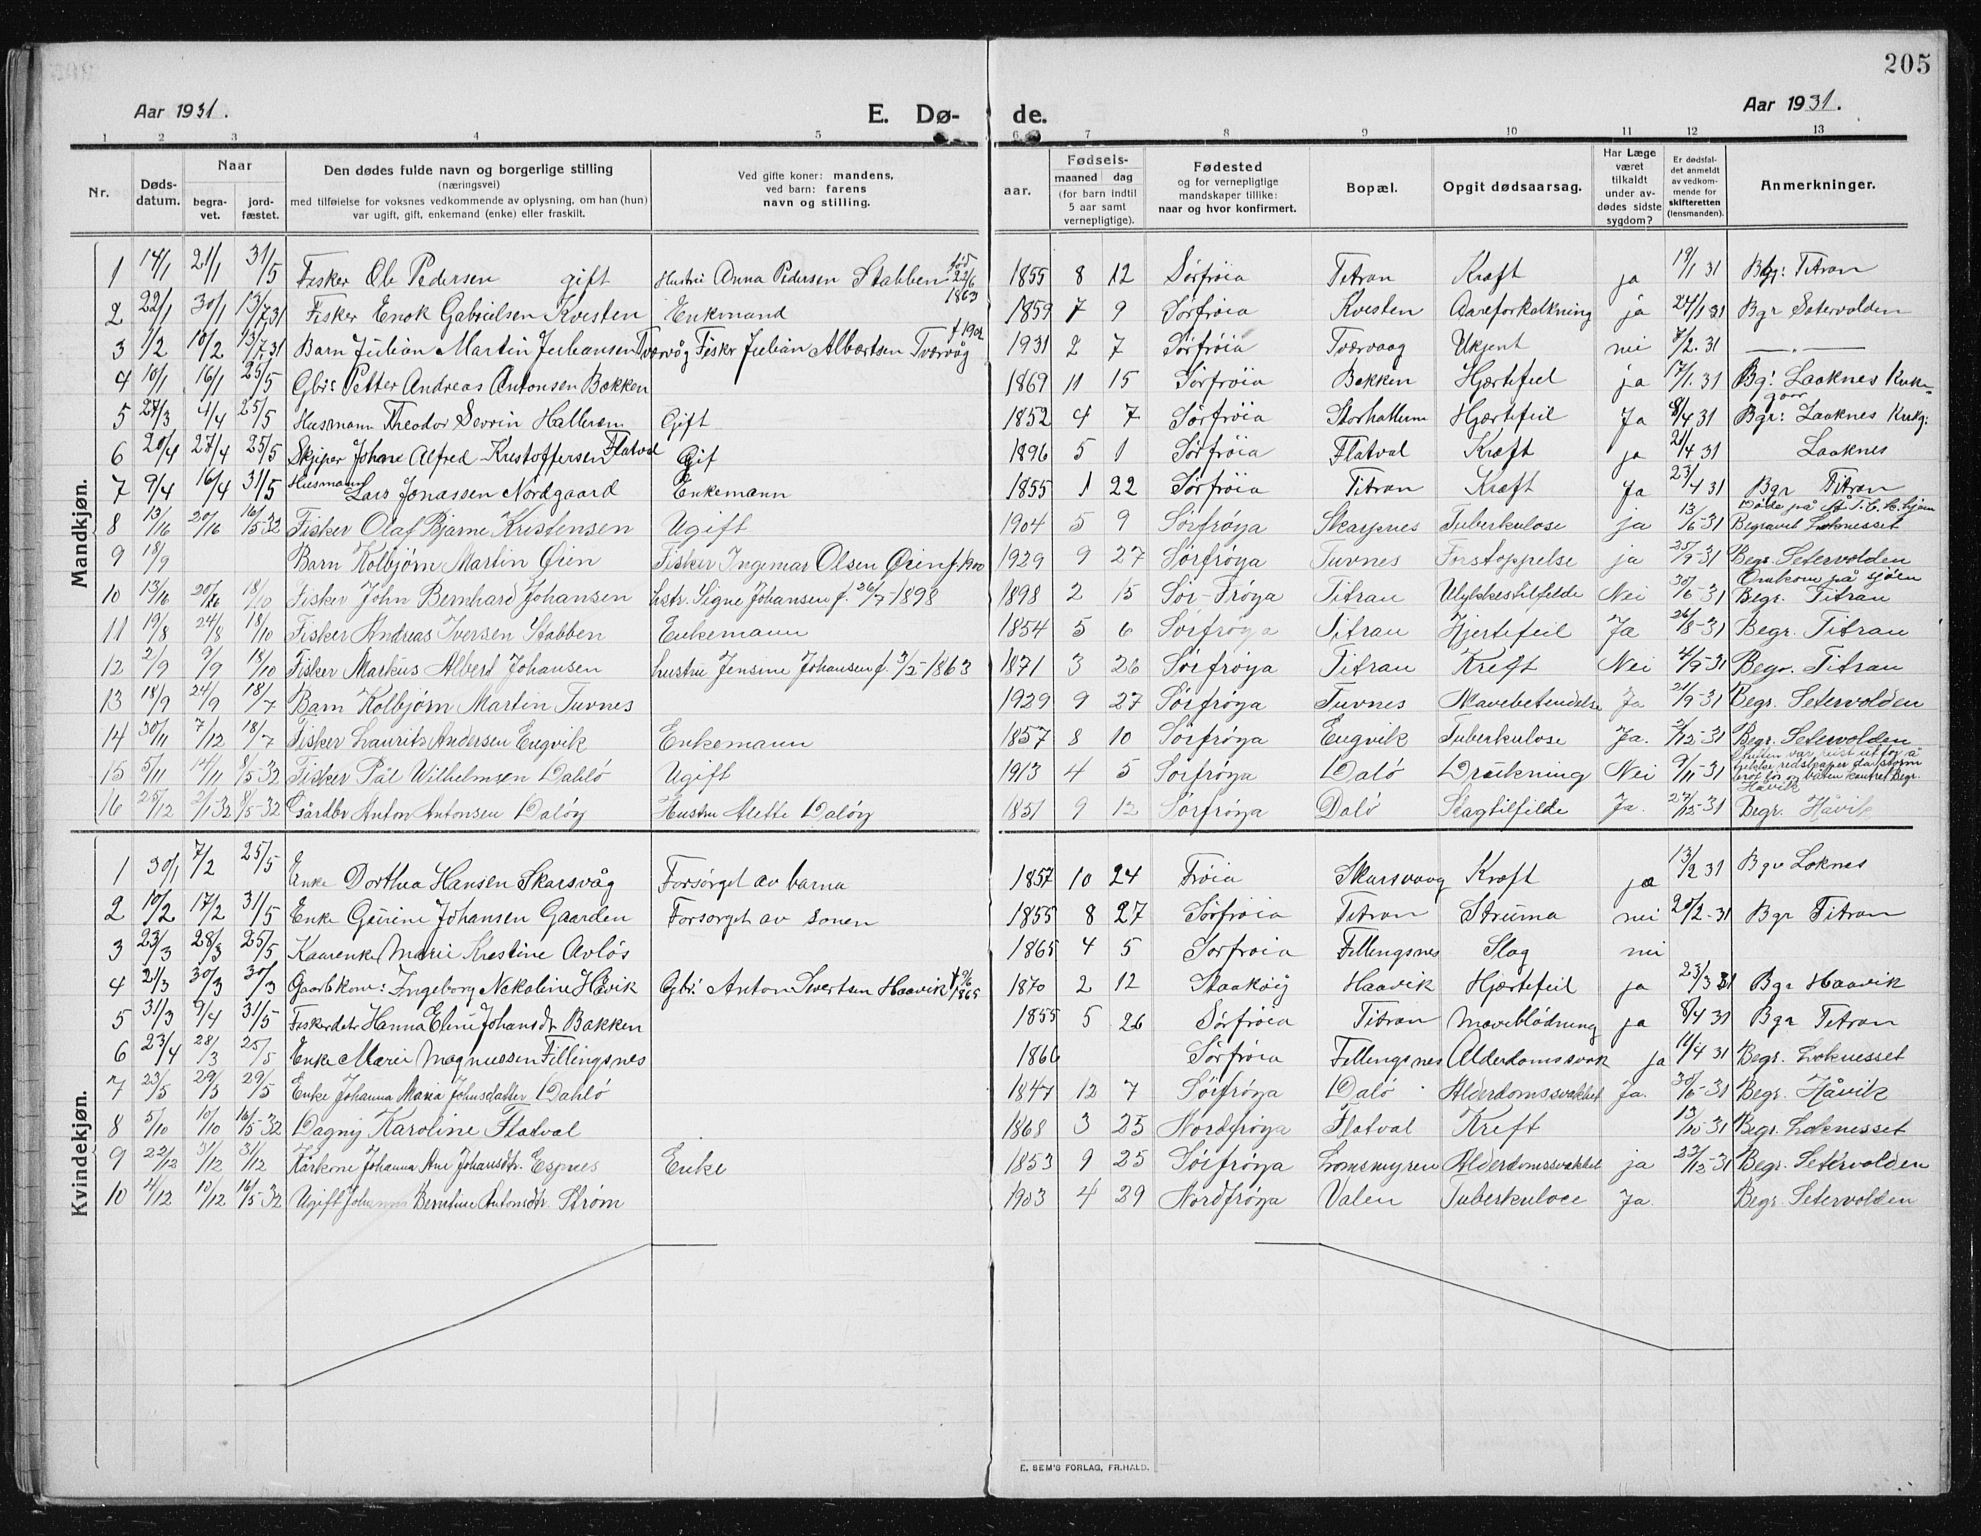 205
Aar 1931.
E. Dø-
de.
Aar 1931.
1 2 3 4 5 6 7 8 9 10 11 12 13
Nr.
Døds-
datum.
Naar
begra-
vet.
jord-
fæstet.
Den dødes fulde navn og borgerlige stilling
(næringsvei)
med tilføielse for voksnes vedkommende av oplysning, om han (hun)
var ugift, gift, enkemand (enke) eller fraskilt.
Ved gifte koner: mandens,
ved barn: farens
navn og stilling.
aar.
Fødsels-
maaned dag
(for barn indtil
5 aar samt
vernepligtige).
Fødested
og for vernepligtige
mandskaper tillike:
naar og hvor konfirmert.
Bopæl.
Opgit dødsaarsag.
Har Læge
været
tilkaldt
under av-
dødes sidste
sygdom?
Er dødsfal-
det anmeldt
av vedkom-
mende for
skifteretten
(lensmanden).
Anmerkninger.
Mandkjøn.
1 14/1 21/1 31/5 Fisker Ole Pedersen gift Hustri Anna Pedersen Stabben fød 22/6 1863 1855 8 12 Sørfrøia Titran Kræft ja 19/1 31 Bgr: Titran
2 22/1 30/1 13/7 31 Fisker Enok Gabrielsen Kvisten Enkemand 1859 7 9 Sørfrøia Kvisten Aareforkalkning ja 24/1 31 Bgr Setervolden
3 1/2 10/2 13/7 31 Barn Julian Martin Juliansen Tværvåg Fisker Julian Albertsen Tværvåg f 1902 1931 2 7 Sørfrøia Tværvaag Ukjent nei 7/2. 31 — . —
4 10/1 16/1 25/5 Gbr: Petter Andreas Antonsen Bakken 1869 11 15 Sørfrøia Bakken Hjærtefeil ja 17/1. 31 Bg: Laaknes Kirke-
gaar
5 27/3 4/4 25/5 Husmann Theodor Sevrin Hallaren Gift 1852 4 7 Sørfrøia Storhallarn Hjærtefeil Ja 8/4 31 Bgr: Laaknes Kirkg:
6 20/4 27/4 25/5 Skjiper Johan Alfred Kristoffersen Flatval Gif 1896 5 1 Sørfrøia Flatval Kræft ja 21/4 31 Laaknes
7 9/4 16/4 31/5 Husmann Lars Jonassen Nordgaard Enkemann 1855 1 22 Sørfrøia Titran Kræft Ja 23/4 31 Bgr Titran
8 13/16 20/16 16/5-32 Fisker Olaf Bjarne Kristensen Ugift 1904 5 9 Sørfrøya Skarpnes Tuberkulose ja 13/6-31 Døde på T.b.k.hjem
Begravet Loknesset
9 18/9 Barn Kolbjørn Martin Øien Fisker Ingemar Olsen Øien f 1900 1929 9 27 Sørfrøya Tuvnes Forstoppelse ja 25/9-31 Begr. Setervolden
10 13/16 20/26 18/10 Fisker John Bernhard Johansen hstr. Signe Johansen f. 26/7-1898 1898 2 15 Sør-Frøya Titran Ulykkestilfelde Nei 30/6-31 Omkom på sjøen
Begr. Titran
11 19/8 24/8 18/10 Fisker Andreas Iversen Stabben Enkemann 1854 5 6 Sørfrøya Titran Hjertefeil Ja 26/8-31 Begr. Titran
12 2/9 9/9 18/10 Fisker Markus Albert Johansen hustru Jensine Johansen f. 3/5-1863 1871 3 26 Sørfrøya Titran Kreft Nei 4/9-31 Begr. Titran
13 18/9 24/9 18/7 Barn Kolbjørn Martin Tuvnes 1929 9 27 Sørfrøya Tuvnes Mavebetendelse Ja 21/9-31 Begr. Setervolden
14 30/11 7/12 18/7 Fisker Laurits Andersen Engvik Enkemann 1857 8 10 Sørfrøya Engvik Tuberkulose Ja. 2/12-31 Begr. Setervolden
15 5/11 14/11 8/5-32 Fisker Pål Wilhelmsen Dahlø Ugift 1913 4 5 Sørfrøya Dalø Drukning Nei 9/11-31 redskaper da storm
brøt løs og båten kantret Begr.
Håvik
16 25/12 2/1 32 8/5-32 Gårdbr Anton Antonsen Daløy Hustru Alette Daløy 1851 9 12 Sørfrøya Dalø Slagtilfelde Ja. 27/12-31 Begr. Håvik
Kvindekjøn.
1 30/1 7/2 25/5 Enke Dorthea Hansen Skarsvåg Forsørget av barna 1857 10 24 Frøia Skarsvaag Kræft ja 13/2 31 Bgr Loknes
2 10/2 17/2 31/5 Enke Gurine Johansen Gaarden Forsørget av sønen 1855 8 27 Sørfrøia Titran Struma nei 20/2-31 Bgr Titran
3 23/3 28/3 25/5 Kaarenke Marie Kristine Avløs 1865 4 5 Sørfrøia Fillingsnes Slag nei
4 21/3 30/3 30/3 Gaardkone: Ingeborg Nekoline Håvik Gbr: Anton Sivertsen Haavik f 9/6 1865 1870 2 12 Haavik Hjærtefeil ja 23/3 31 Bgr Haavik
5 31/3 9/4 31/5 Fiskerdatr Hanna Eline Johansdtr Bakken 1855 5 26 Sørfrøia Titran Maveblødning ja 8/4 31 Bgr Titran
6 23/4 28/3 25/5 Enke Marie Magnussen Fillingsnes 1866 Sørfrøia Fillingsnes Alderdomssvak ja 11/4 31 Begr. Loknesset
7 23/5 29/5 29/5 Enke Johanna Maria Johnsdatter Dahlø 1847 12 7 Sørfrøya Dalø Alderdomssvakhet Ja. 30/5-31 Begr. Håvik
8 5/10 10/10 16/5-32 Dagny Karoline Flatval 1868 3 25 Nordfrøya Flatval Kreft 13/10-31 Begr. Loknesset
9 22/12 31/12 31/12 Kårkone Johanna Ane Johansdtr. Espnes Enke 1853 9 25 Sørfrøya Lomsmyren Alderdomssvakhet ja 22/12-31 Begr. Setervolden
10 4/12 10/12 16/5-32 Ugift Johanna Berntine Antonsdtr. Strøm 1903 4 29 Nordfrøya Valen Tuberkuloce Ja. Begr. Setervolden
E. SEM'S FORLAG, FR.HALD.